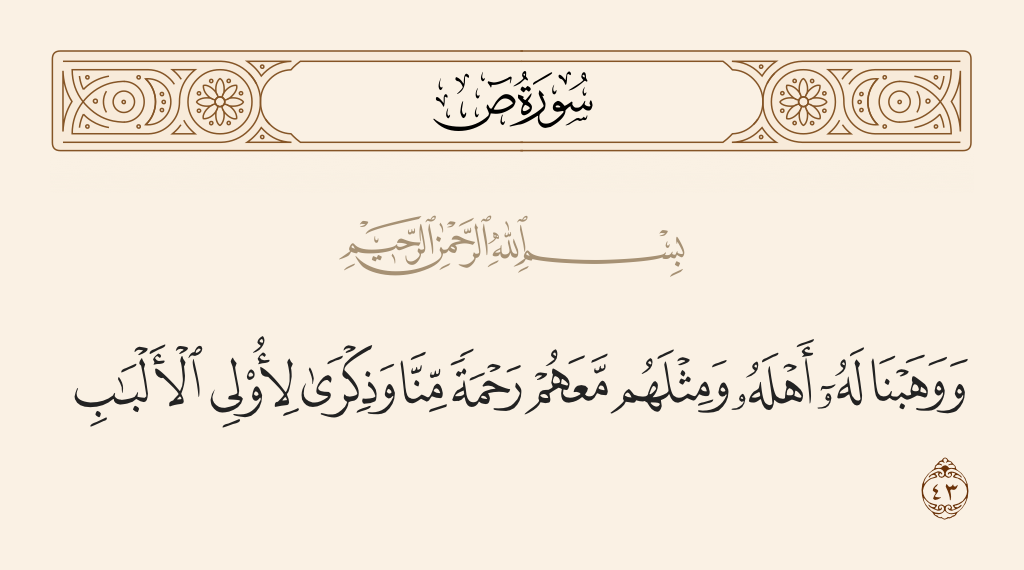 سُورَةُ ص
بِسْمِ ٱللَّهِ ٱلرَّحْمَٰنِ ٱلرَّحِيمِ
وَوَهَبْنَا لَهُۥٓ أَهْلَهُۥ وَمِثْلَهُم مَّعَهُمْ رَحْمَةً مِّنَّا وَذِكْرَىٰ لِأُو۟لِى ٱلْأَلْبَٰبِ
٤٣